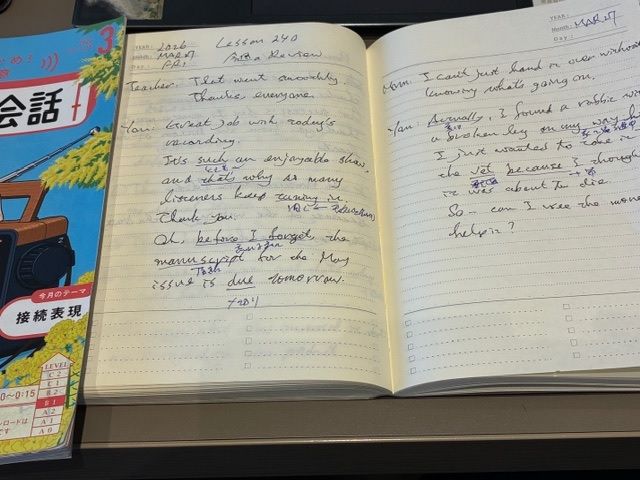 3
会話
今月のテーマ
接続表現
0～0:15
LEVEL
C 2
C 1
B 2
B 1
A 2
A 1
A 0
ロードは
です
YEAR: 2026
Month: MAR27
Day: FRI
Lesson 240
Review
Teacher: That went smoothly.
Thanks, everyone.
You: Great job with today's
recording.
It's such an enjoyable show,
and that's why so many
listeners keep tuning in.
Thank you.
Oh, before I forget, the
manuscript for the May
issue is due tomorrow.
YEAR:
Month: MAR27
Day:
Mom: I can't just hand it over without
knowing what's going on.
You: Actually, I found a rabbit with
a broken leg on my way h
I just wanted to take it
the vet because I though
it was about to die.
So - can I use the mone
help it?